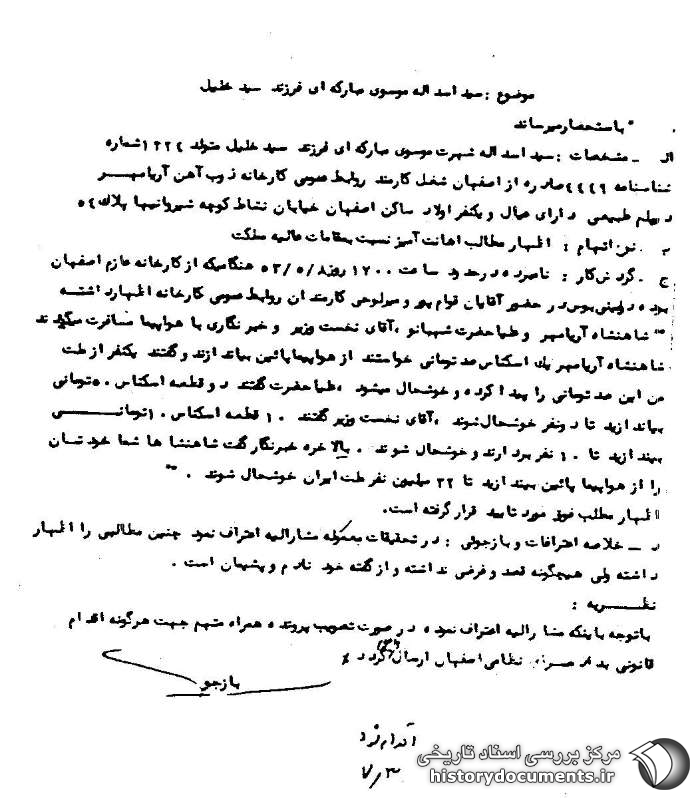 موضوع : سید اسد اله موسوی مبارکه ای فرزند سید خلیل
باستحضار میرساند
الف ـ مشخصات : سید اسد اله شهرت موسوی مبارکه ای فرزند سید خلیل متولد ۱۳۲۴ شماره
شناسنامه ۴۴۴۹ صادره از اصفهان شغل کارمند روابط عمومی کارخانه ذوب آهن آریامهر
دیپلم طبیعی دارای عیال و یکنفر اولاد ساکن اصفهان خیابان نشاط کوچه شیروانیها پلاک ۵۴
ب ـ نوع اتهام : اظهار مطالب اهانت آمیز نسبت بمقامات عالیه مملکت
ج ـ گردش کار : نامبرده در حدود ساعت ۱۷۰۰ روز ۵۳/۵/۸ هنگامیکه از کارخانه عازم اصفهان
بوده در مینی بوس در حضور آقایان قوام پور و میرلوحی کارمندان روابط عمومی کارخانه اظهار داشته
"" شاهنشاه آریامهر و علیاحضرت شهبانو ، آقای نخست وزیر و خبرنگاری با هواپیما مسافرت میکردند
شاهنشاه آریامهر یک اسکناس صد تومانی خواستند از هواپیما پائین بیاندازند و گفتند یکنفر از ملت
من این صد تومانی را پیدا کرده و خوشحال میشود ، علیاحضرت گفتند دو قطعه اسکناس ۵۰ تومانی
بیاندازید تا دو نفر خوشحال شوند ، آقای نخست وزیر گفتند ۱۰ قطعه اسکناس ۱۰ تومانی
بیندازید تا ۱۰ نفر بردارند و خوشحال شوند . بالاخره خبرنگار گفت شاهنشاها شما خودتان
را از هواپیما پائین بیندازید تا ۳۲ میلیون نفر ملت ایران خوشحال شوند . ""
اظهار مطلب فوق مورد تایید قرار گرفته است.
د ـ خلاصه اعترافات و بازجوئی : در تحقیقات معموله مشارالیه اعتراف نمود چنین مطالبی را اظهار
داشته ولی هیچگونه قصد و غرضی نداشته و از گفته خود نادم و پشیمان است .
نظـــریه :
باتوجه باینکه مشارالیه اعتراف نموده در صورت تصویب پرونده همراه متهم جهت هرگونه اقدام
قانونی به نظامی اصفهان ارسال گردد
بازجو
اقدام شود
۷/۳
مرکز بررسی اسناد تاریخی
historydocuments.ir